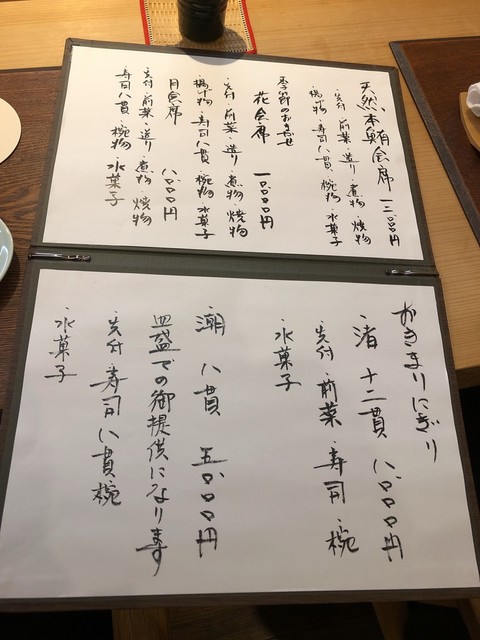 天然本鮪会席 一二、〇〇〇円
・先付・前菜・造り・煮物・焼物
・揚げ物・寿司八貫・椀物・水菓子
季節のおまかせ
花会席 一〇、〇〇〇円
・先付・前菜・造り・煮物・焼物
・揚げ物・寿司八貫・椀物・水菓子
月会席 八、〇〇〇円
・先付・前菜・造り・煮物・焼物
・寿司八貫・椀物・水菓子
おきまりにぎり
・渚 十二貫 八、〇〇〇円
・先付・前菜・寿司・椀
・水菓子
・潮 八貫 五、〇〇〇円
皿盛での御提供になります
・先付・寿司八貫・椀
・水菓子